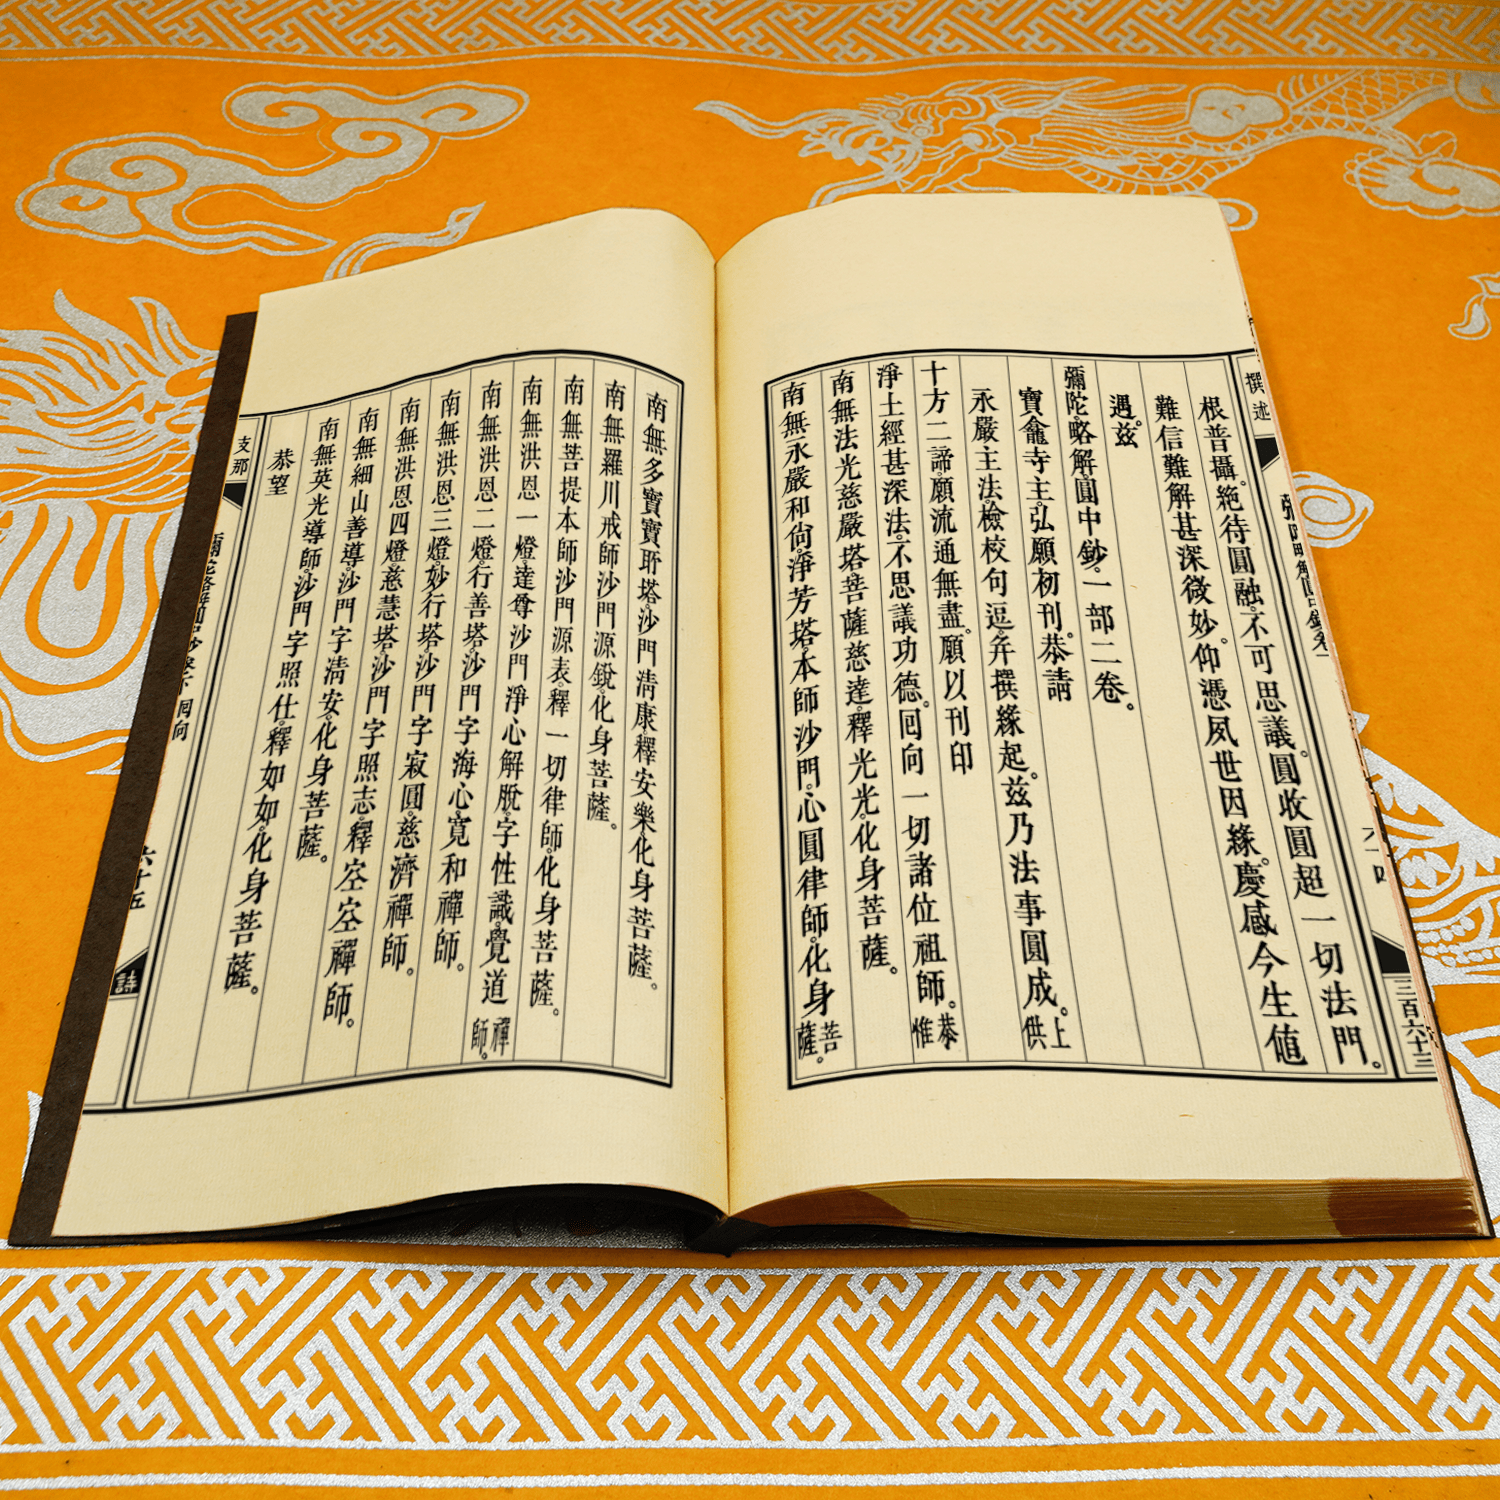 撰述
根普攝。絶待圓融。不可思議。圓收圓超一切法門。
難信難解甚深微妙。仰憑夙世因緣。慶感今生値
遇。兹
彌陀。略解圓中鈔。一部二卷。
寶龕寺主。弘願初刊。恭請
永嚴主法。檢校句逗。弁撰緣起。兹乃法事圓成。上供
十方二諦。願流通無盡。願以刊印
淨土經甚深法。不思議功德。囘向一切諸位祖師。恭惟
南無法光慈嚴塔菩薩慈達。釋光光。化身菩薩。
南無永嚴和尙。淨芳塔。本師沙門。心圓律師。化身菩薩。
三百六十三
南無多寶寶聍塔。沙門淸康。釋安樂。化身菩薩。
南無羅川戒師沙門源銳。化身菩薩。
南無菩提本師沙門源表。釋一切律師。化身菩薩。
南無洪恩一燈。達尊沙門淨心解脫。字性識。覺道禪師。
南無洪恩二燈。行善塔。沙門字海心。寬和禪師。
南無洪恩三燈。妙行塔。沙門字寂圓。慈濟禪師。
南無洪恩四燈。慈慧塔。沙門字照志。釋空空禪師。
南無細山善導。沙門字淸安。化身菩薩。
南無英光導師。沙門字照仕。釋如如。化身菩薩。
恭望
支那
回向
六十五